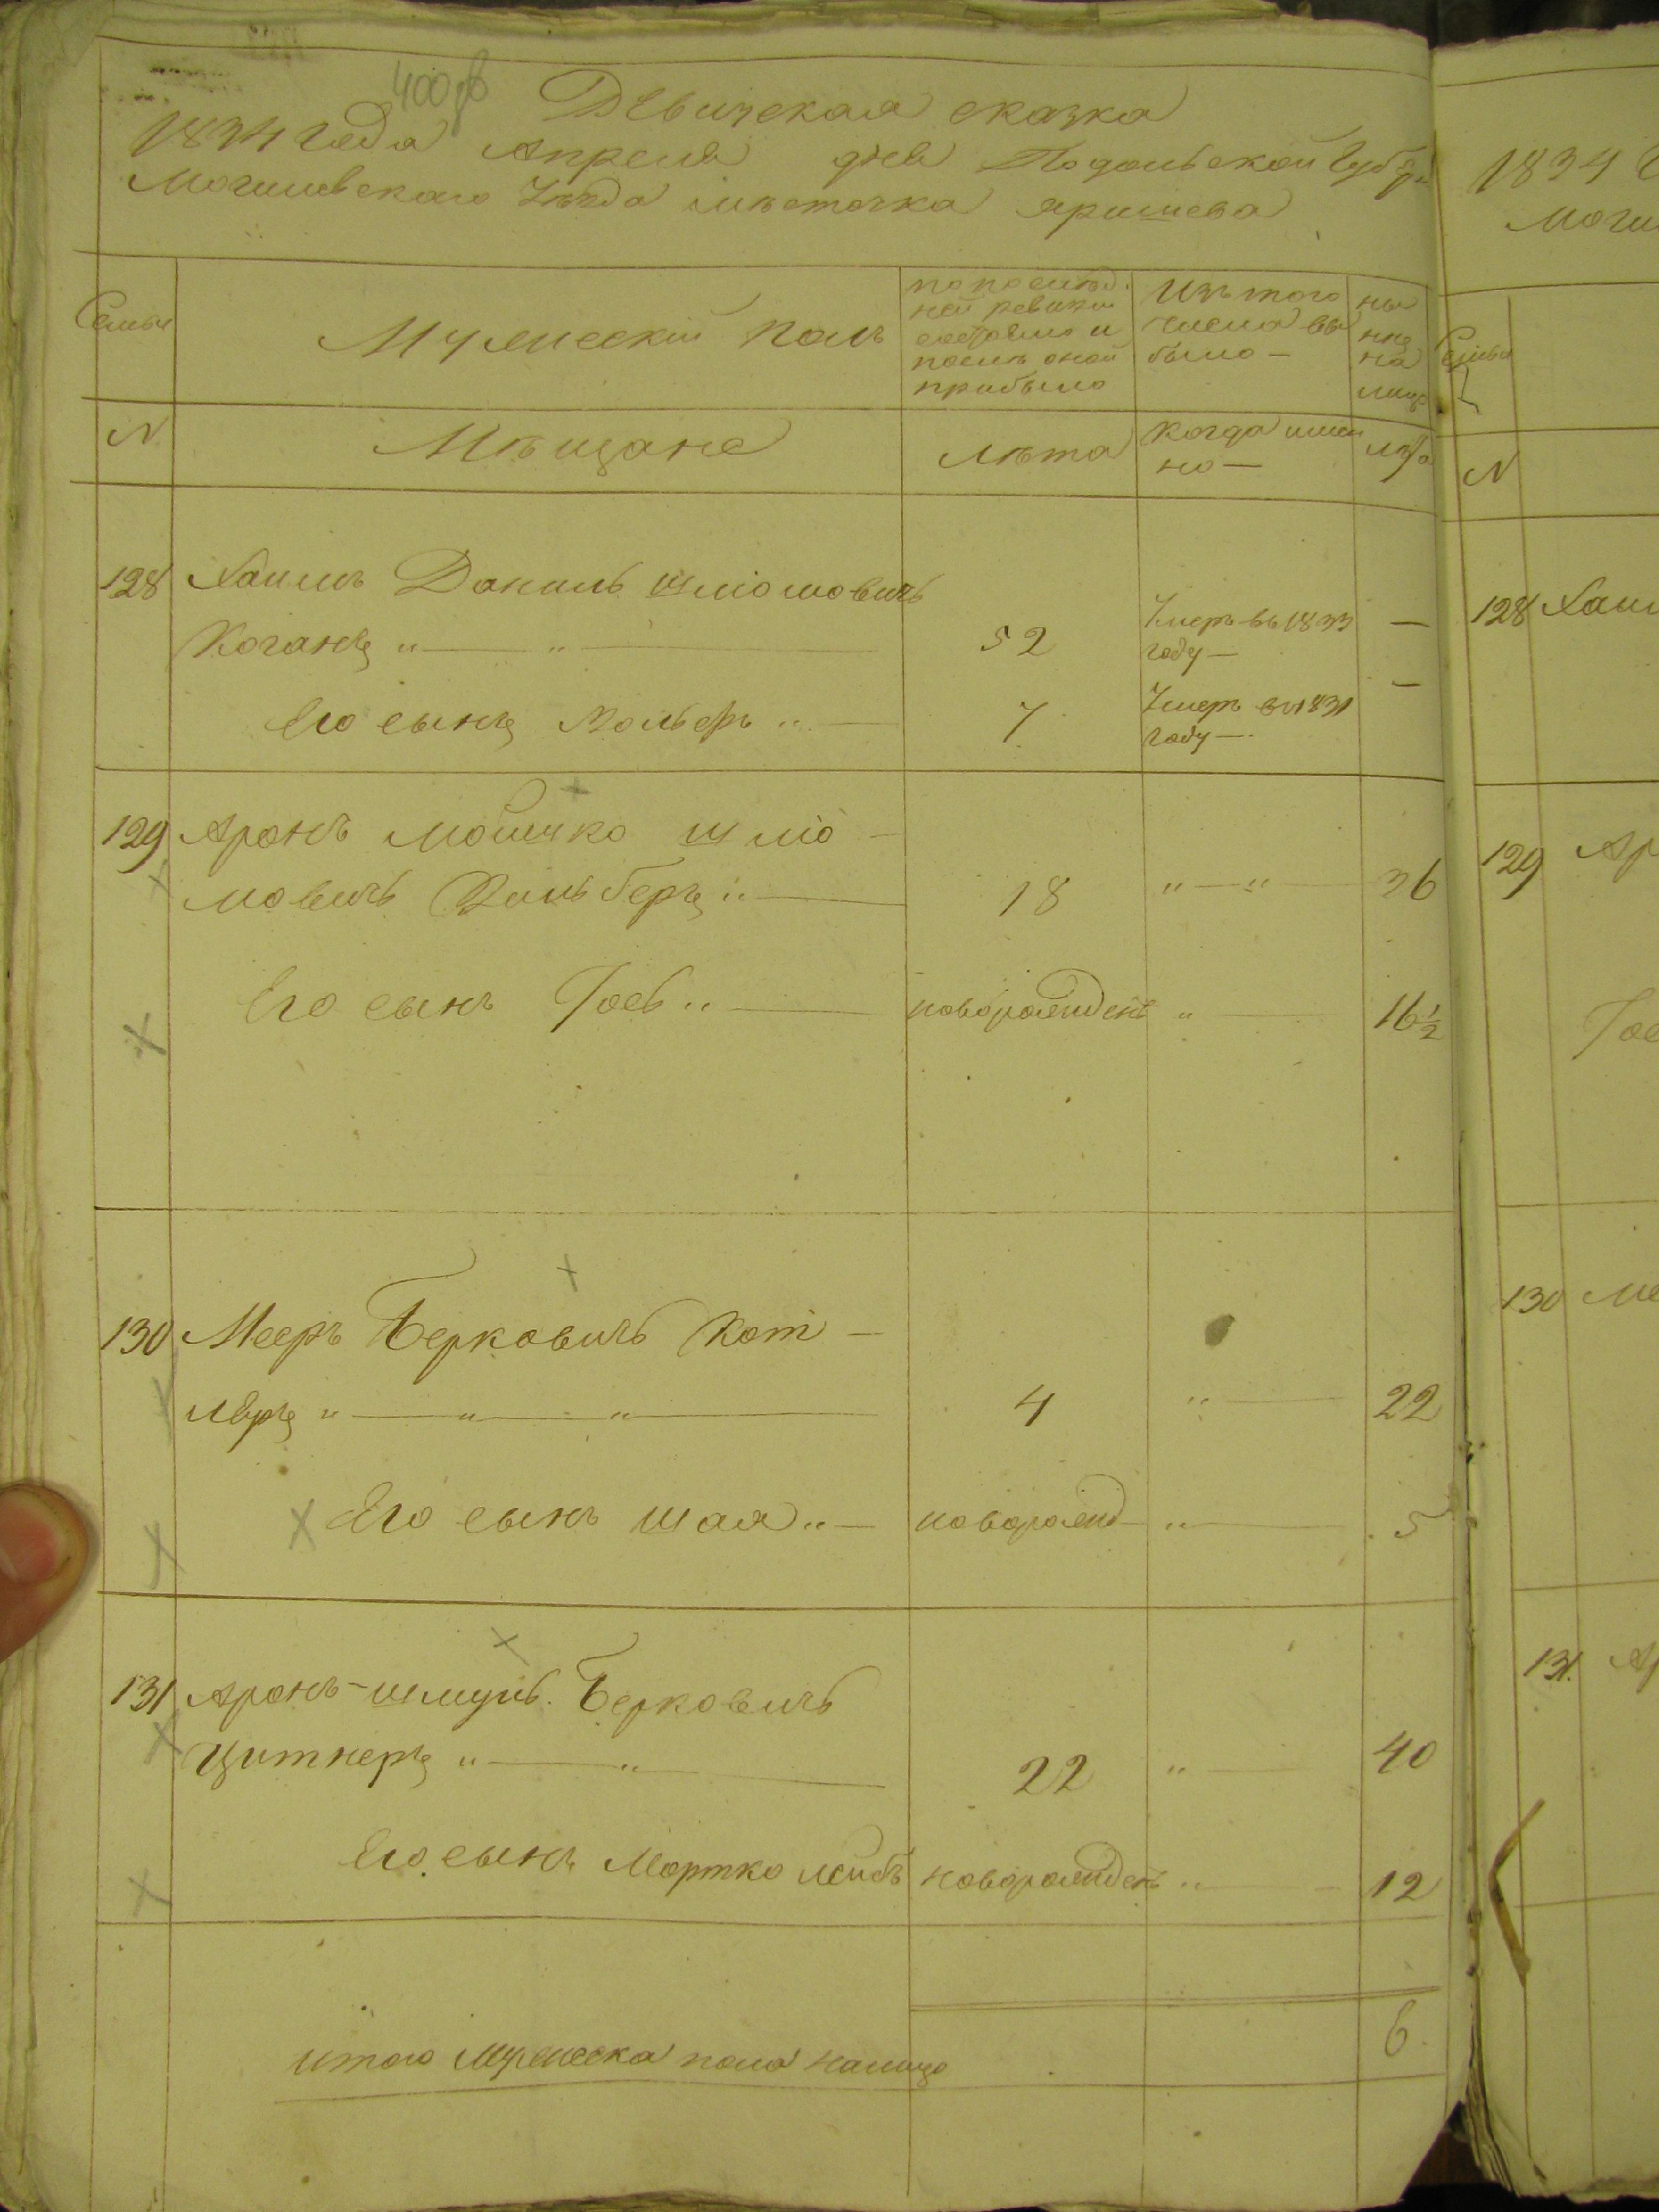 400 об
Ревизская сказка
1834 года Апреля дня Подольской Губер
Могилевскаго Уезда местечка Яришева
Семьи
Мужеский Полъ
по послед
ней ревизии
состояло и
после оной
прибыло
Изъ того
числа вы
было —
ны
не
на
лицо
N
Мещане
Лета
Когда имен
но —
лета
128 Хаимъ Даниль Шліомовичъ
Коганъ " — " — 52 Умеръ въ 1833 —
году —
Его сынъ Вольфъ " — 7 Умеръ въ 1831 —
году —
129 Аронъ Мошко Шліо —
мовичъ Зильберъ " — 18 " — " — 36
Его сынъ Іосъ " — новорожденъ " — 16½
130 Мееръ Берковичъ Кот —
ляръ " — " — " — 4 " — 22
Его сынъ Шая " — новорожд — " — 5
131 Аронъ-Шмуль Берковичъ
Цитнеръ " — " — 22 " — 40
Его сынъ Мортко Лейбъ новорожденъ " — 12
Итого Мужеска пола налицо 6.
1834
Моги
Семьи
N
128 Хаи
129 Ар
Іос
130 Ме
131. Ар